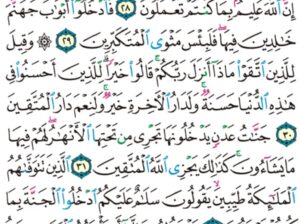 إِنَّ ٱللَّهَ عَلِيمُۢ بِمَا كُنتُمْ تَعْمَلُونَ ٢٨ فَٱدْخُلُوٓا۟ أَبْوَٰبَ جَهَنَّمَ
خَٰلِدِينَ فِيهَا فَلَبِئْسَ مَثْوَى ٱلْمُتَكَبِّرِينَ ٢٩ ۞ وَقِيلَ
لِلَّذِينَ ٱتَّقَوْا۟ مَاذَآ أَنزَلَ رَبُّكُمْ قَالُوا۟ خَيْرًا لِّلَّذِينَ أَحْسَنُوا۟ فِى
هَٰذِهِ ٱلدُّنْيَا حَسَنَةٌ وَلَدَارُ ٱلْءَاخِرَةِ خَيْرٌ وَلَنِعْمَ دَارُ ٱلْمُتَّقِينَ
٣٠ جَنَّٰتُ عَدْنٍ يَدْخُلُونَهَا تَجْرِى مِن تَحْتِهَا ٱلْأَنْهَٰرُ لَهُمْ فِيهَا
مَا يَشَآءُونَ كَذَٰلِكَ يَجْزِى ٱللَّهُ ٱلْمُتَّقِينَ ٣١ ٱلَّذِينَ تَتَوَفَّىٰهُمُ
ٱلْمَلَٰٓئِكَةُ طَيِّبِينَ يَقُولُونَ سَلَٰمٌ عَلَيْكُمُ ٱدْخُلُوا۟ ٱلْجَنَّةَ بِمَا